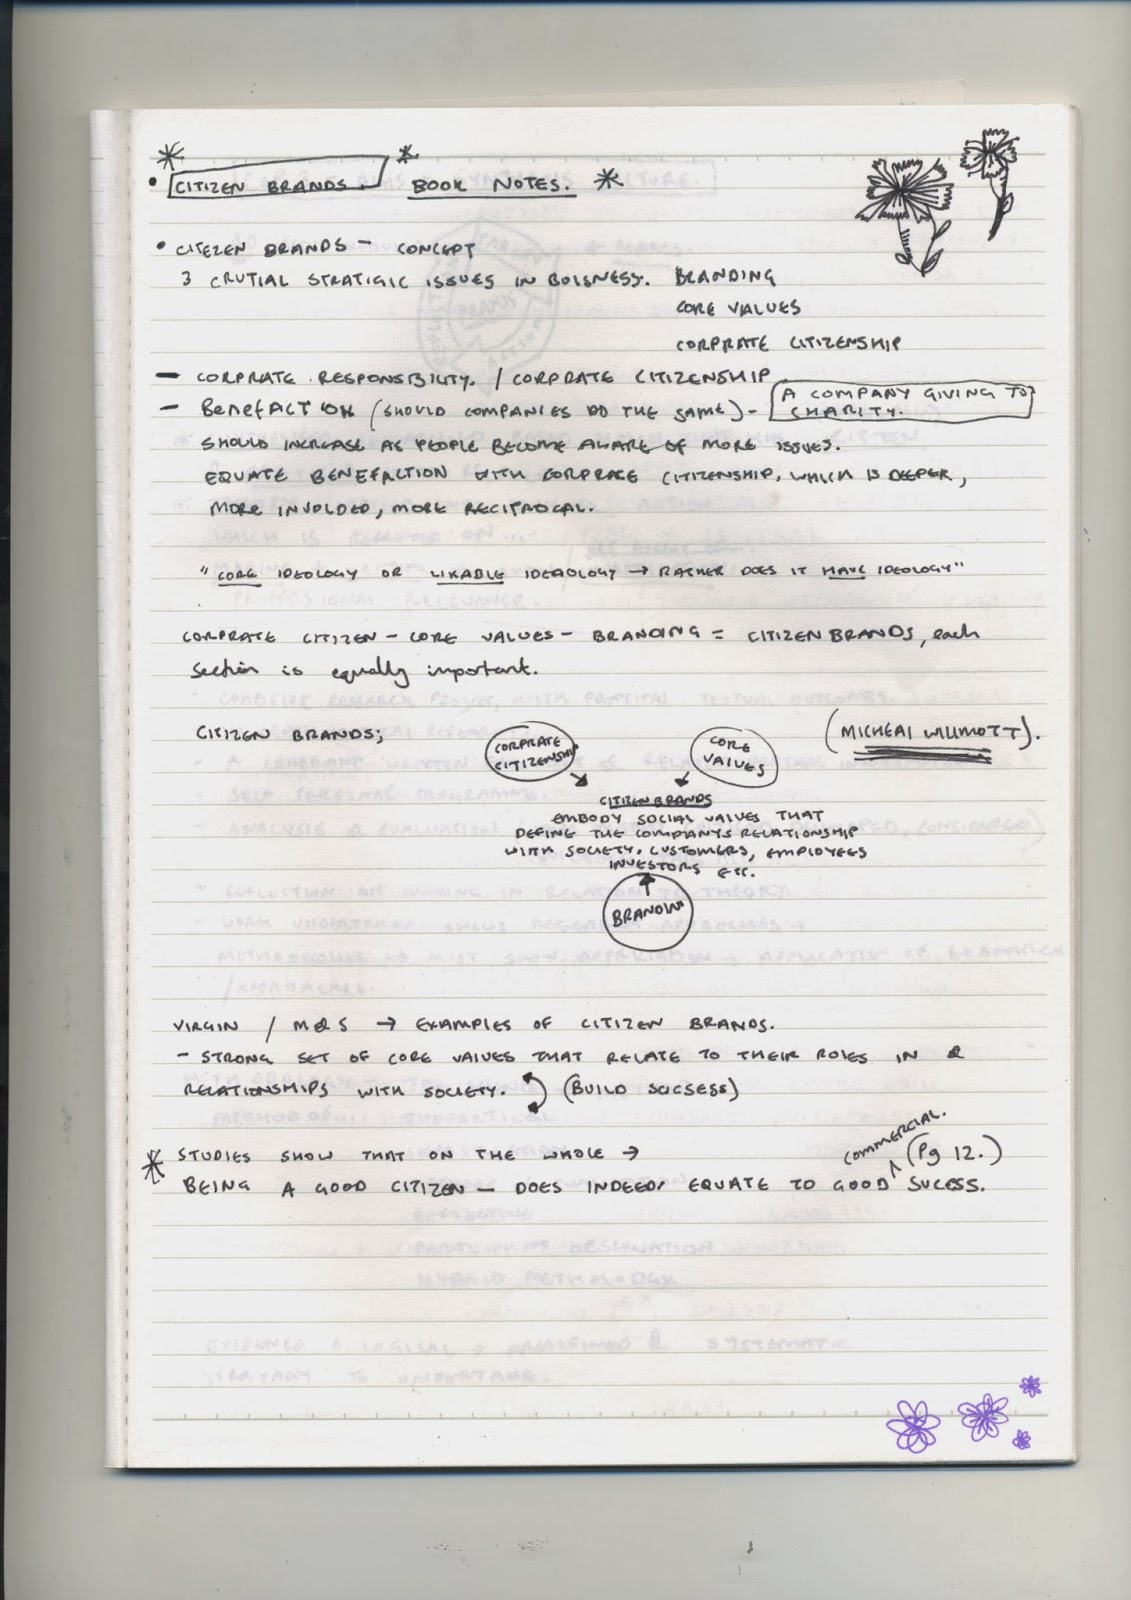 • CITIZEN BRANDS. BOOK NOTES.
• CITEZEN BRANDS - CONCEPT
3 CRUTIAL STRATIGIC ISSUES IN BUISNESS. BRANDING
CORE VALUES
CORPRATE CITIZENSHIP
- CORPRATE RESPONSIBILITY. / CORPORATE CITIZENSHIP
- BENEFACTION (SHOULD COMPANIES DO THE SAME) - A COMPANY GIVING TO
CHARITY.
SHOULD INCREASE AS PEOPLE BECOME AWARE OF MORE ISSUES.
EQUATE BENEFACTION WITH CORPRATE CITIZENSHIP, WHICH IS DEEPER,
MORE INVOLDED, MORE RECIPROCAL.
"CORE IDEOLOGY OR LIKABLE IDEAOLOGY → RATHER DOES IT HAVE IDEOLOGY"
CORPRATE CITIZEN - CORE VALUES - BRANDING = CITIZEN BRANDS, each
section is equally important.
CITIZEN BRANDS;
(MICHEAL WILLMOTT).
CORPRATE
CITIZENSHIP
CORE
VALUES
CITIZEN BRANDS
EMBODY SOCIAL VALUES THAT
DEFINE THE COMPANYS RELATIONSHIP
WITH SOCIETY. CUSTOMERS, EMPLOYEES
INVESTORS ETC.
VIRGIN / M&S → EXAMPLES OF CITIZEN BRANDS.
- STRONG SET OF CORE VALUES THAT RELATE TO THEIR ROLES IN &
RELATIONSHIPS WITH SOCIETY. (BUILD SUCSESS)
STUDIES SHOW THAT ON THE WHOLE → (Pg 12.)
commercial.
BEING A GOOD CITIZEN - DOES INDEED EQUATE TO GOOD SUCESS.